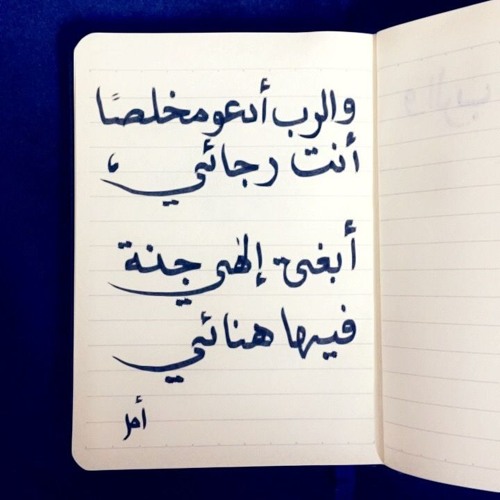 والرب أدعو مخلصًا
أنت رجائي،
أبغي إلهي جنة
فيها هنائي
أمل